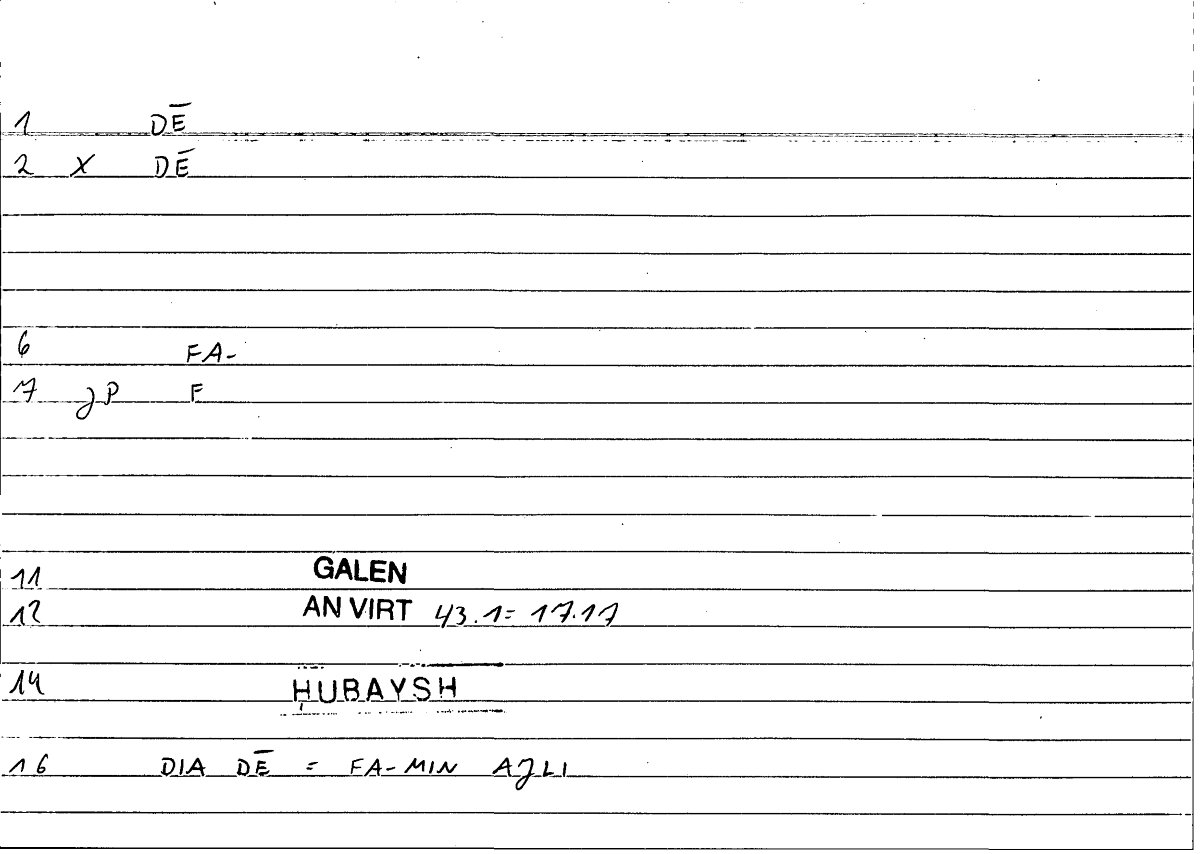 1 DĒ
2 X DĒ
6 FA-
7 JP F
11 GALEN
12 AN VIRT 43.1= 17.17
14 ḤUBAYSH
16 DIA DĒ = FA-MIN AJLI